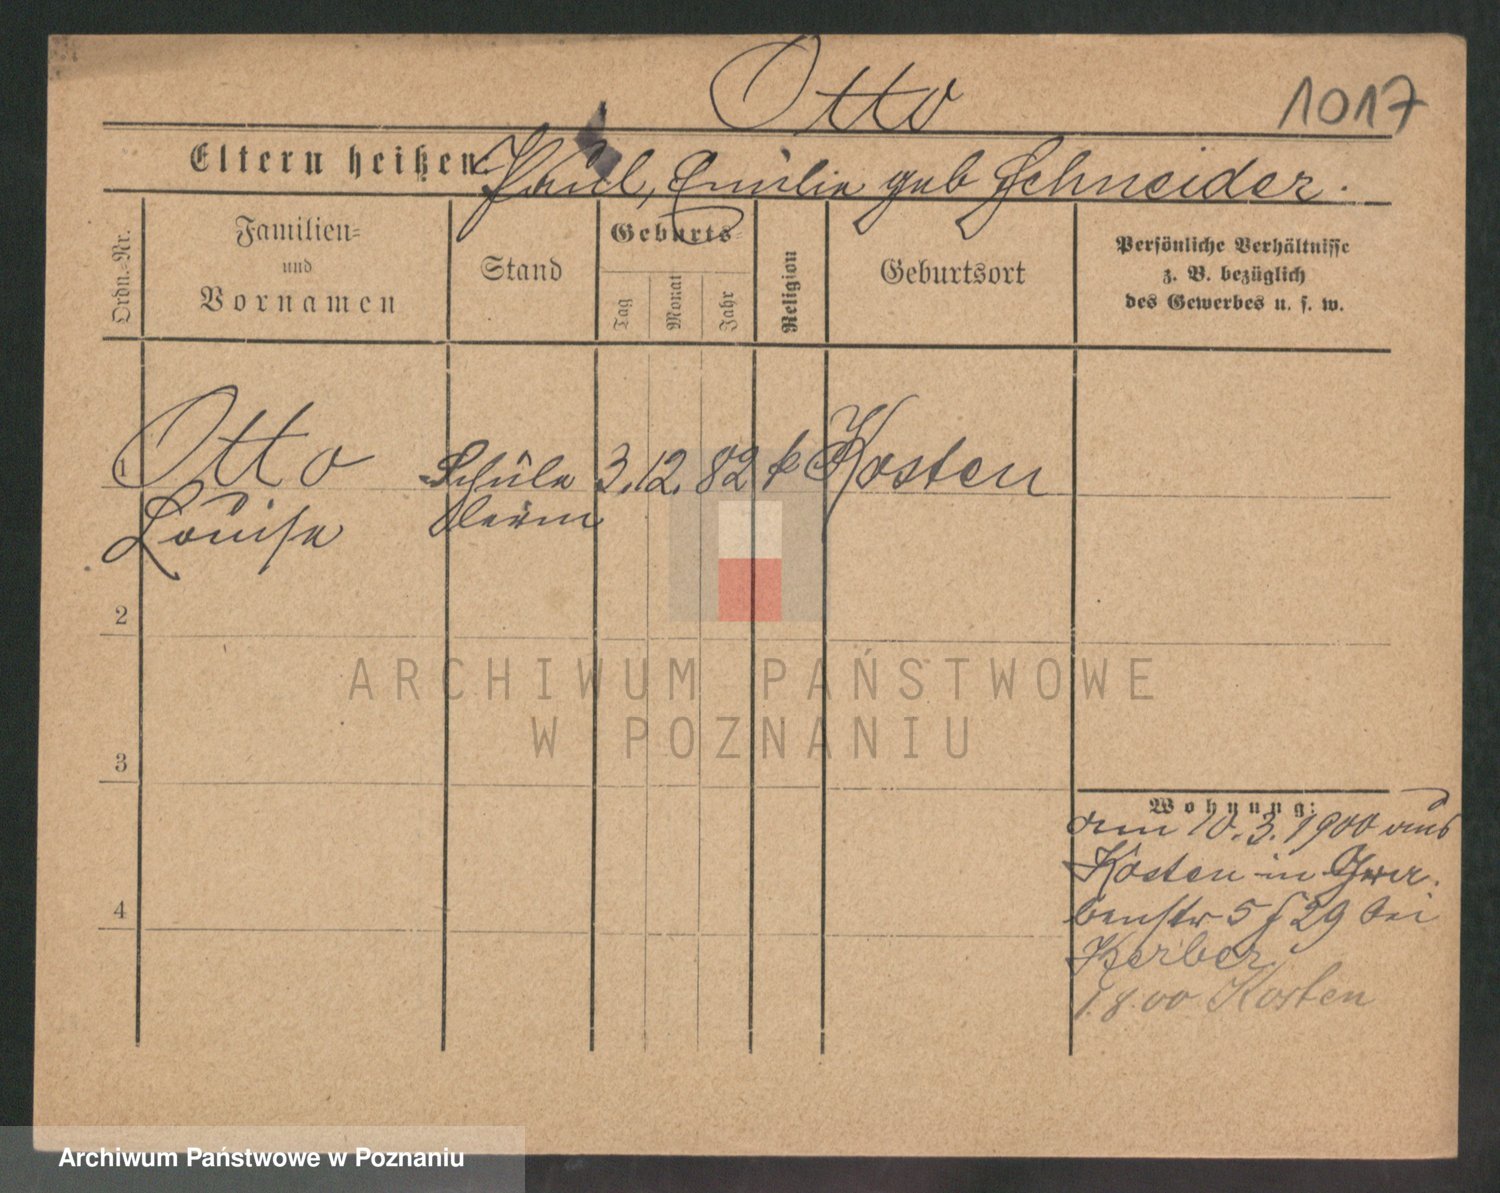 Otto
1017
Eltern heißen: Paul, Emilie geb Schneider.
Ordn.-Nr.
Familien-
und
Vornamen
Stand
Geburts-
Tag
Monat
Jahr
Religion
Geburtsort
Persönliche Verhältnisse
z. B. bezüglich
des Gewerbes u. s. w.
1 Otto Schüle 3. 12. 82 k Kosten
Louise rerin
2
ARCHIWUM PAŃSTWOWE
W POZNANIU
3
Wohnung:
am 10.3.1900 aus
Kosten in Gra
benstr 5 29 bei
Kerber
1.8.00 Kosten
4
Archiwum Państwowe w Poznaniu